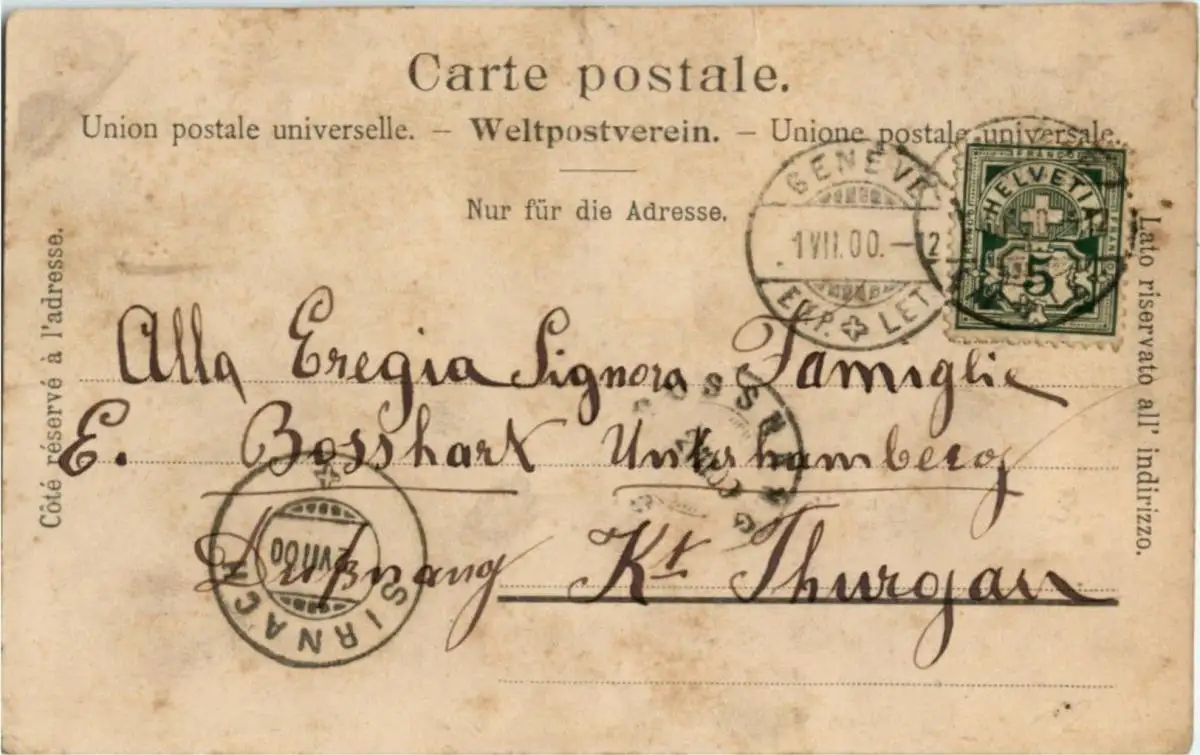 Carte postale.
Union postale universelle. – Weltpostverein. – Unione postale universale.
Nur für die Adresse.
Côté réservé à l'adresse.
Lato riservato all' indirizzo.
GENÈVE
1 VII.00.–12
EXP. LET
FRANCO
HELVETIA
5
Alla Eregia Signora Famiglie
E. Bosshart Unterhamberg
Dußnang Kt. Thurgau
DUSSNANG
SIRNACH
2 VII 00